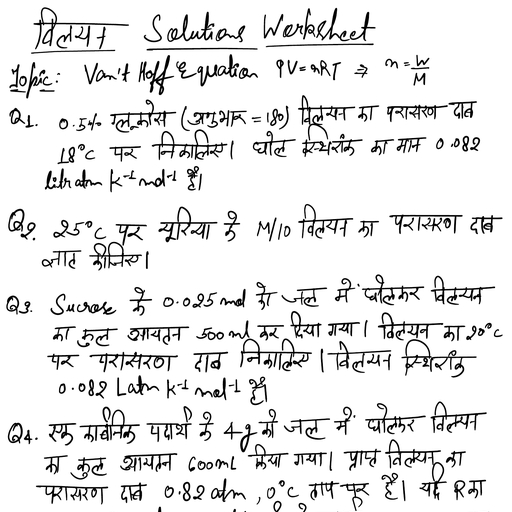 विलयन Solutions Worksheet
Topic: Van't Hoff Equation PV=nRT ⇒ n=W/M
Q1. 0.5% ग्लूकोस (अनुभार = 180) विलयन का परासरण दाब
18°C पर निकालिए। घोल स्थिरांक का मान 0.082
litratm K⁻¹ mol⁻¹ है।
Q2. 25°C पर यूरिया के M/10 विलयन का परासरण दाब
ज्ञात कीजिए।
Q3. Sucrose के 0.025 mol को जल में घोलकर विलयन
का कुल आयतन 500 ml कर दिया गया। विलयन का 20°C
पर परासरण दाब निकालिए। विलयन स्थिरांक
0.082 Latm K⁻¹ mol⁻¹ है।
Q4. एक कार्बनिक पदार्थ के 4g को जल में घोलकर विलयन
का कुल आयतन 600mL किया गया। प्राप्त विलयन का
परासरण दाब 0.82 atm, 0°C ताप पर है। यदि R का